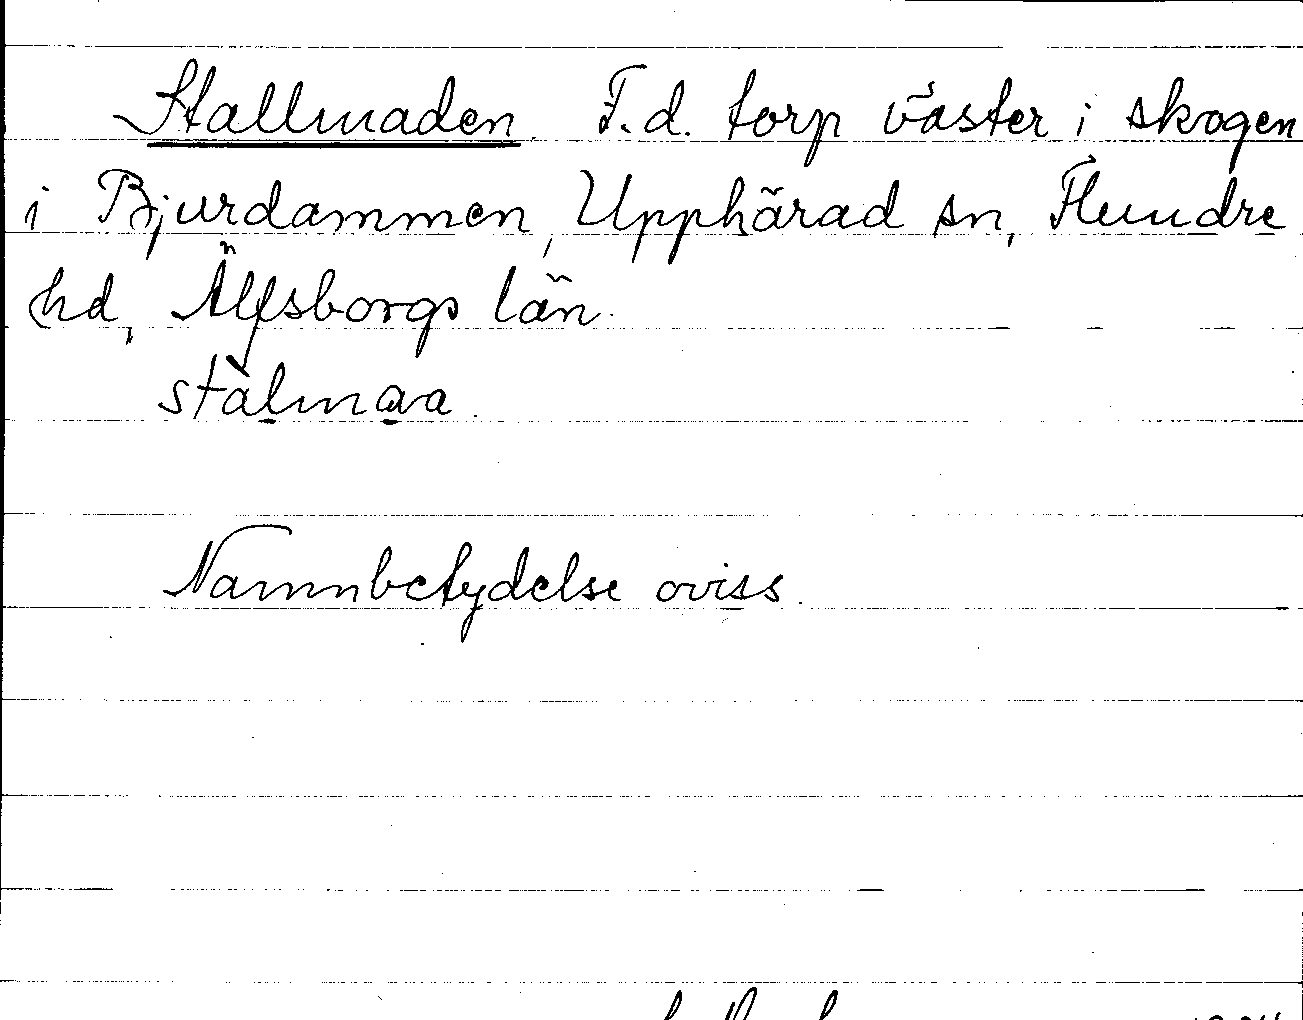 Stallmaden. F.d. torp väster i skogen
i Bjurdammen, Upphärad sn, Flundre
hd, Älfsborgs län.
stàlmaa.
Namnbetydelse oviss.